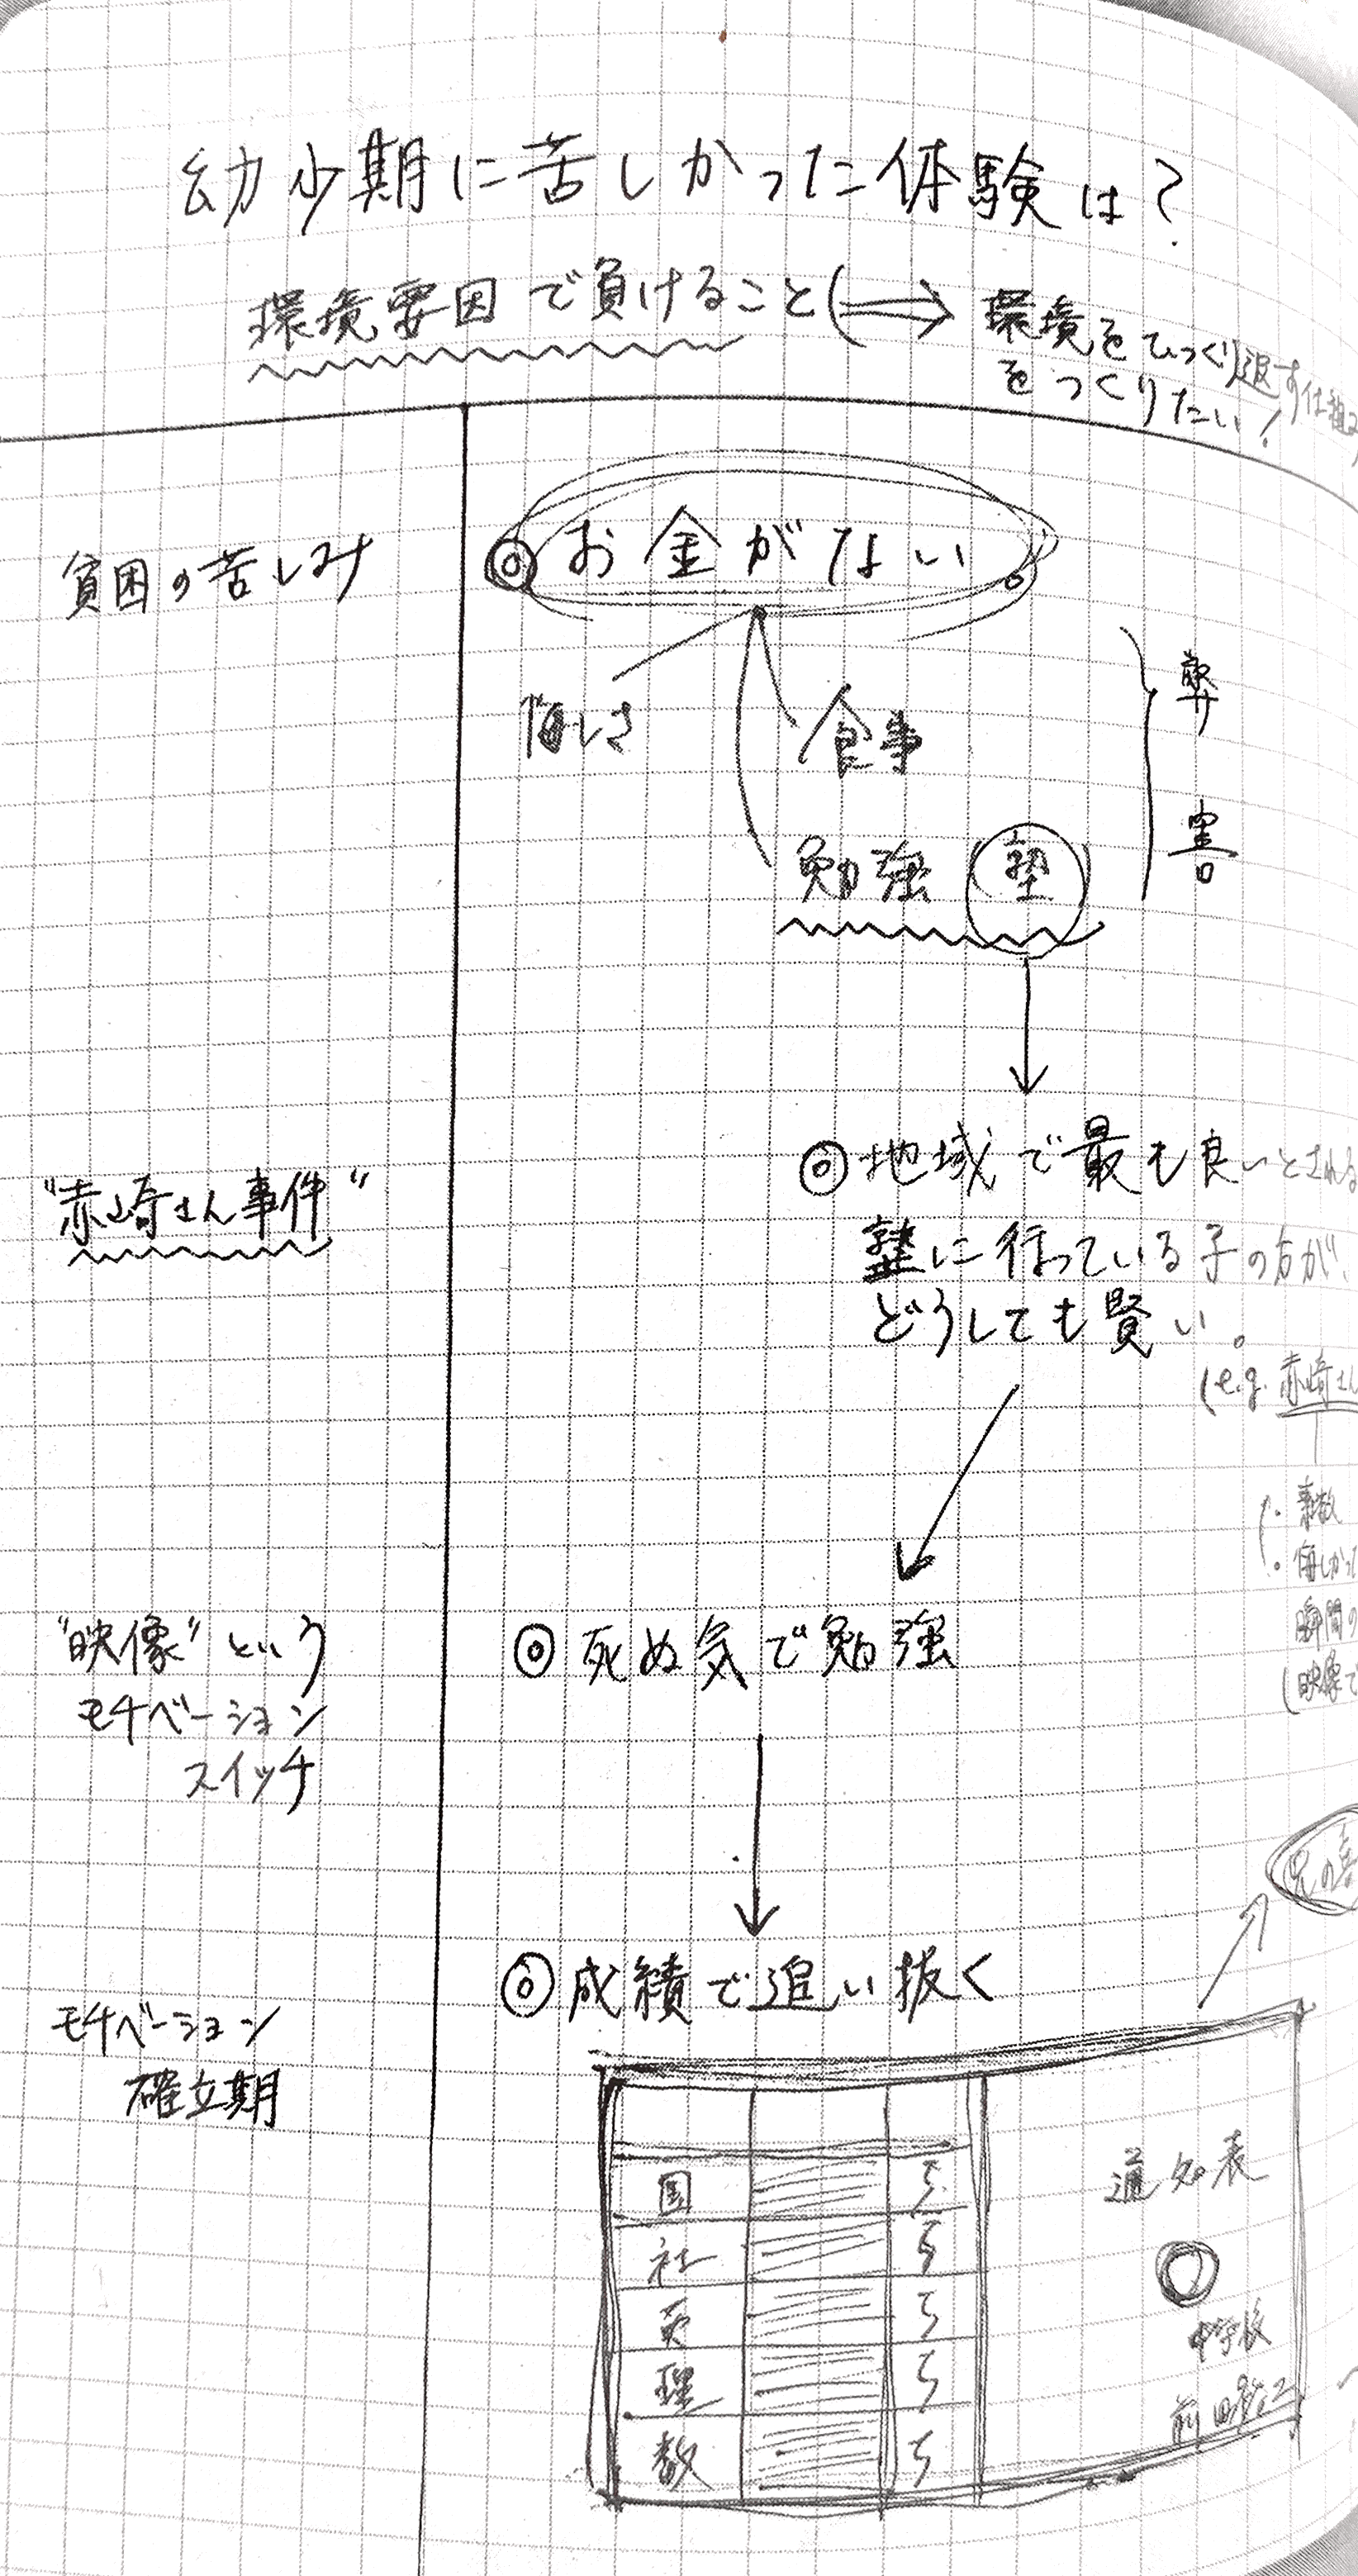 幼少期に苦しかった体験は?
環境要因で負けること(⇒ 環境をひっくり返す仕組み
をつくりたい!
貧困の苦しみ
◎お金がない
悔しさ
食事
弊害
勉強(塾)
"赤崎さん事件"
◎地域で最も良いとされる
塾に行っている子の方が、
どうしても賢い。
(e.g. 赤崎さん
・悔しかっ
瞬間の
(映像で
"映像"という
モチベーション
スイッチ
◎死ぬ気で勉強
◎成績で追い抜く
モチベーション
確立期
国 5
社 5
英 5
理 5
数 5
通知表
中学校
前田